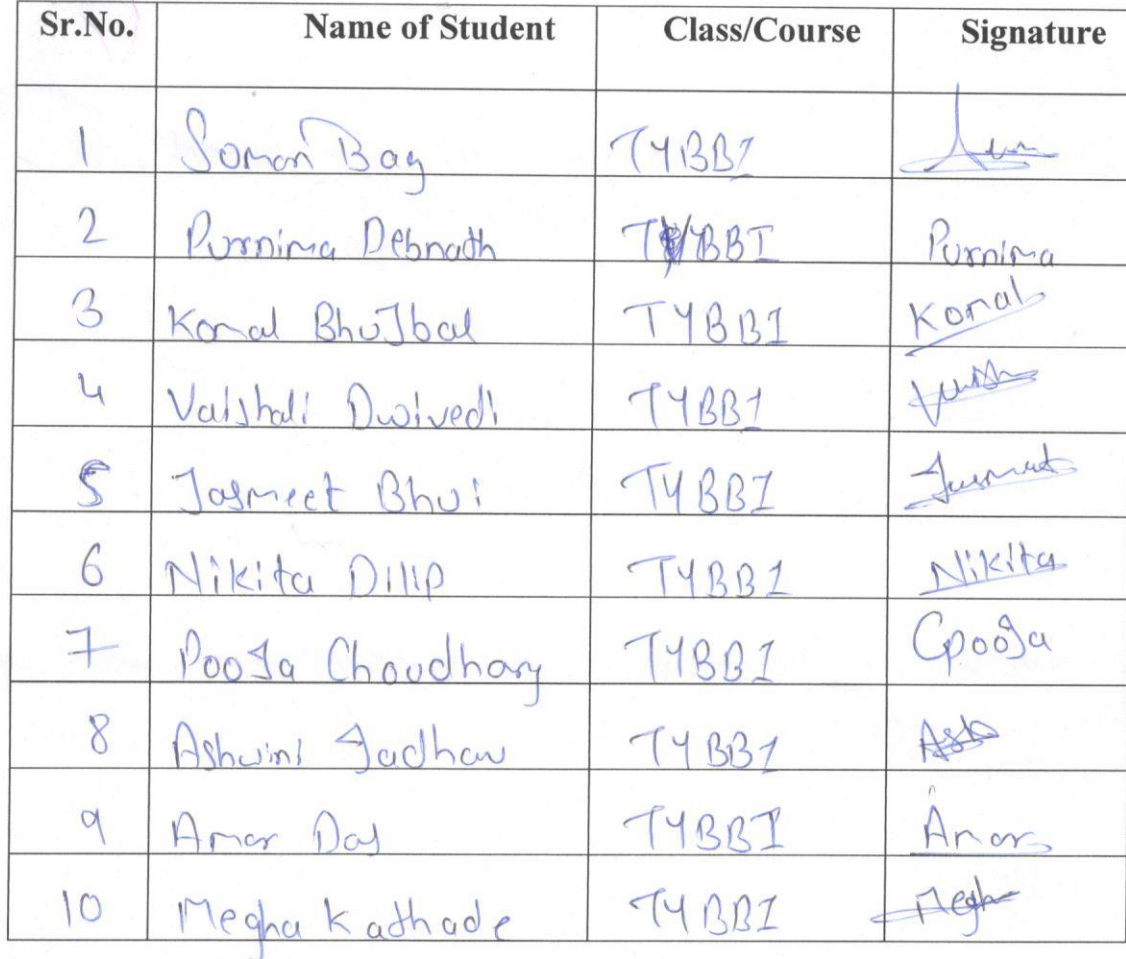 Sr.No. Name of Student Class/Course Signature
1 Soman Bag TYBBI
2 Purnima Debnath TYBBI Purnima
3 Komal BhuJbal TYBBI Komal
4 Vaishali Dwivedi TYBBI
5 Jasmeet Bhui TYBBI Jasmeet
6 Nikita Dilip TYBBI Nikita
7 PooJa Choudhary TYBBI CpooJa
8 Ashwini Jadhav TYBBI Ash
9 Amar Das TYBBI Amar
10 Megha Kathade TYBBI Megha